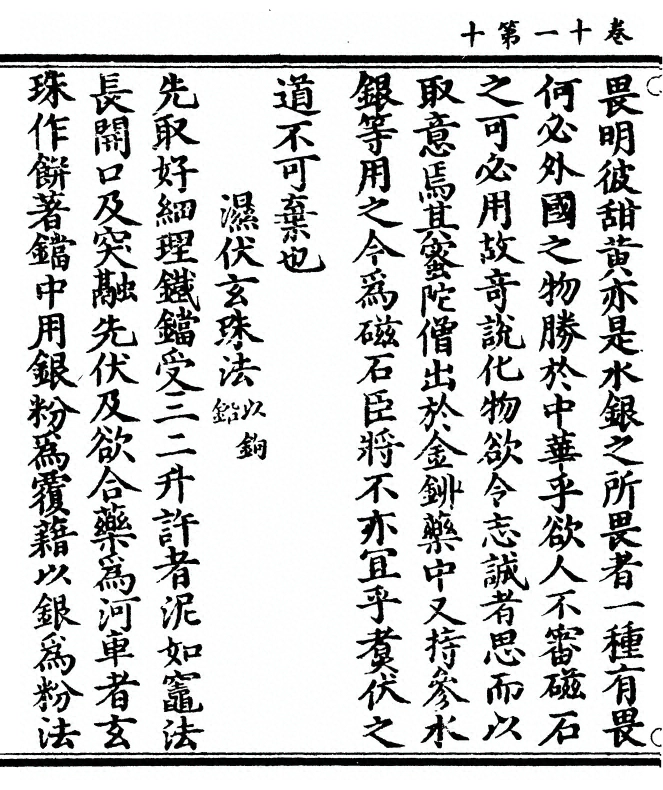 卷十一第十
畏明彼甜黃亦是水銀之所畏者一種有畏
何必外國之物勝於中華乎欲人不審磁石
之可必用故奇說化物欲令志誠者思而以
取意焉其蜜陀僧出於金鉚藥中又持參水
銀等用之今爲磁石臣將不亦宜乎煑伏之
道不可棄也
濕伏玄珠法以鉛銅
先取好細理鐵鐺受三二升許者泥如竈法
長開口及突融先伏及欲合藥爲河車者玄
珠作餅著鐺中用銀粉爲覆藉以銀爲粉法